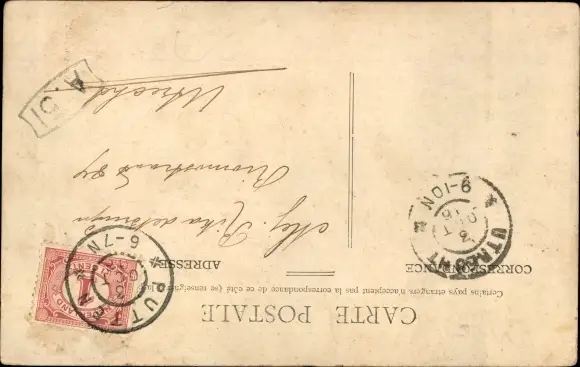 CARTE POSTALE
Certains pays étrangers n'acceptent pas la correspondance de ce côté (se renseigner
CORRESPONDANCE
ADRESSE
Mej. Rika de Bruyn
Utrecht
1
CENT
PUTTEN
6-7N
UTRECHT
9-10N